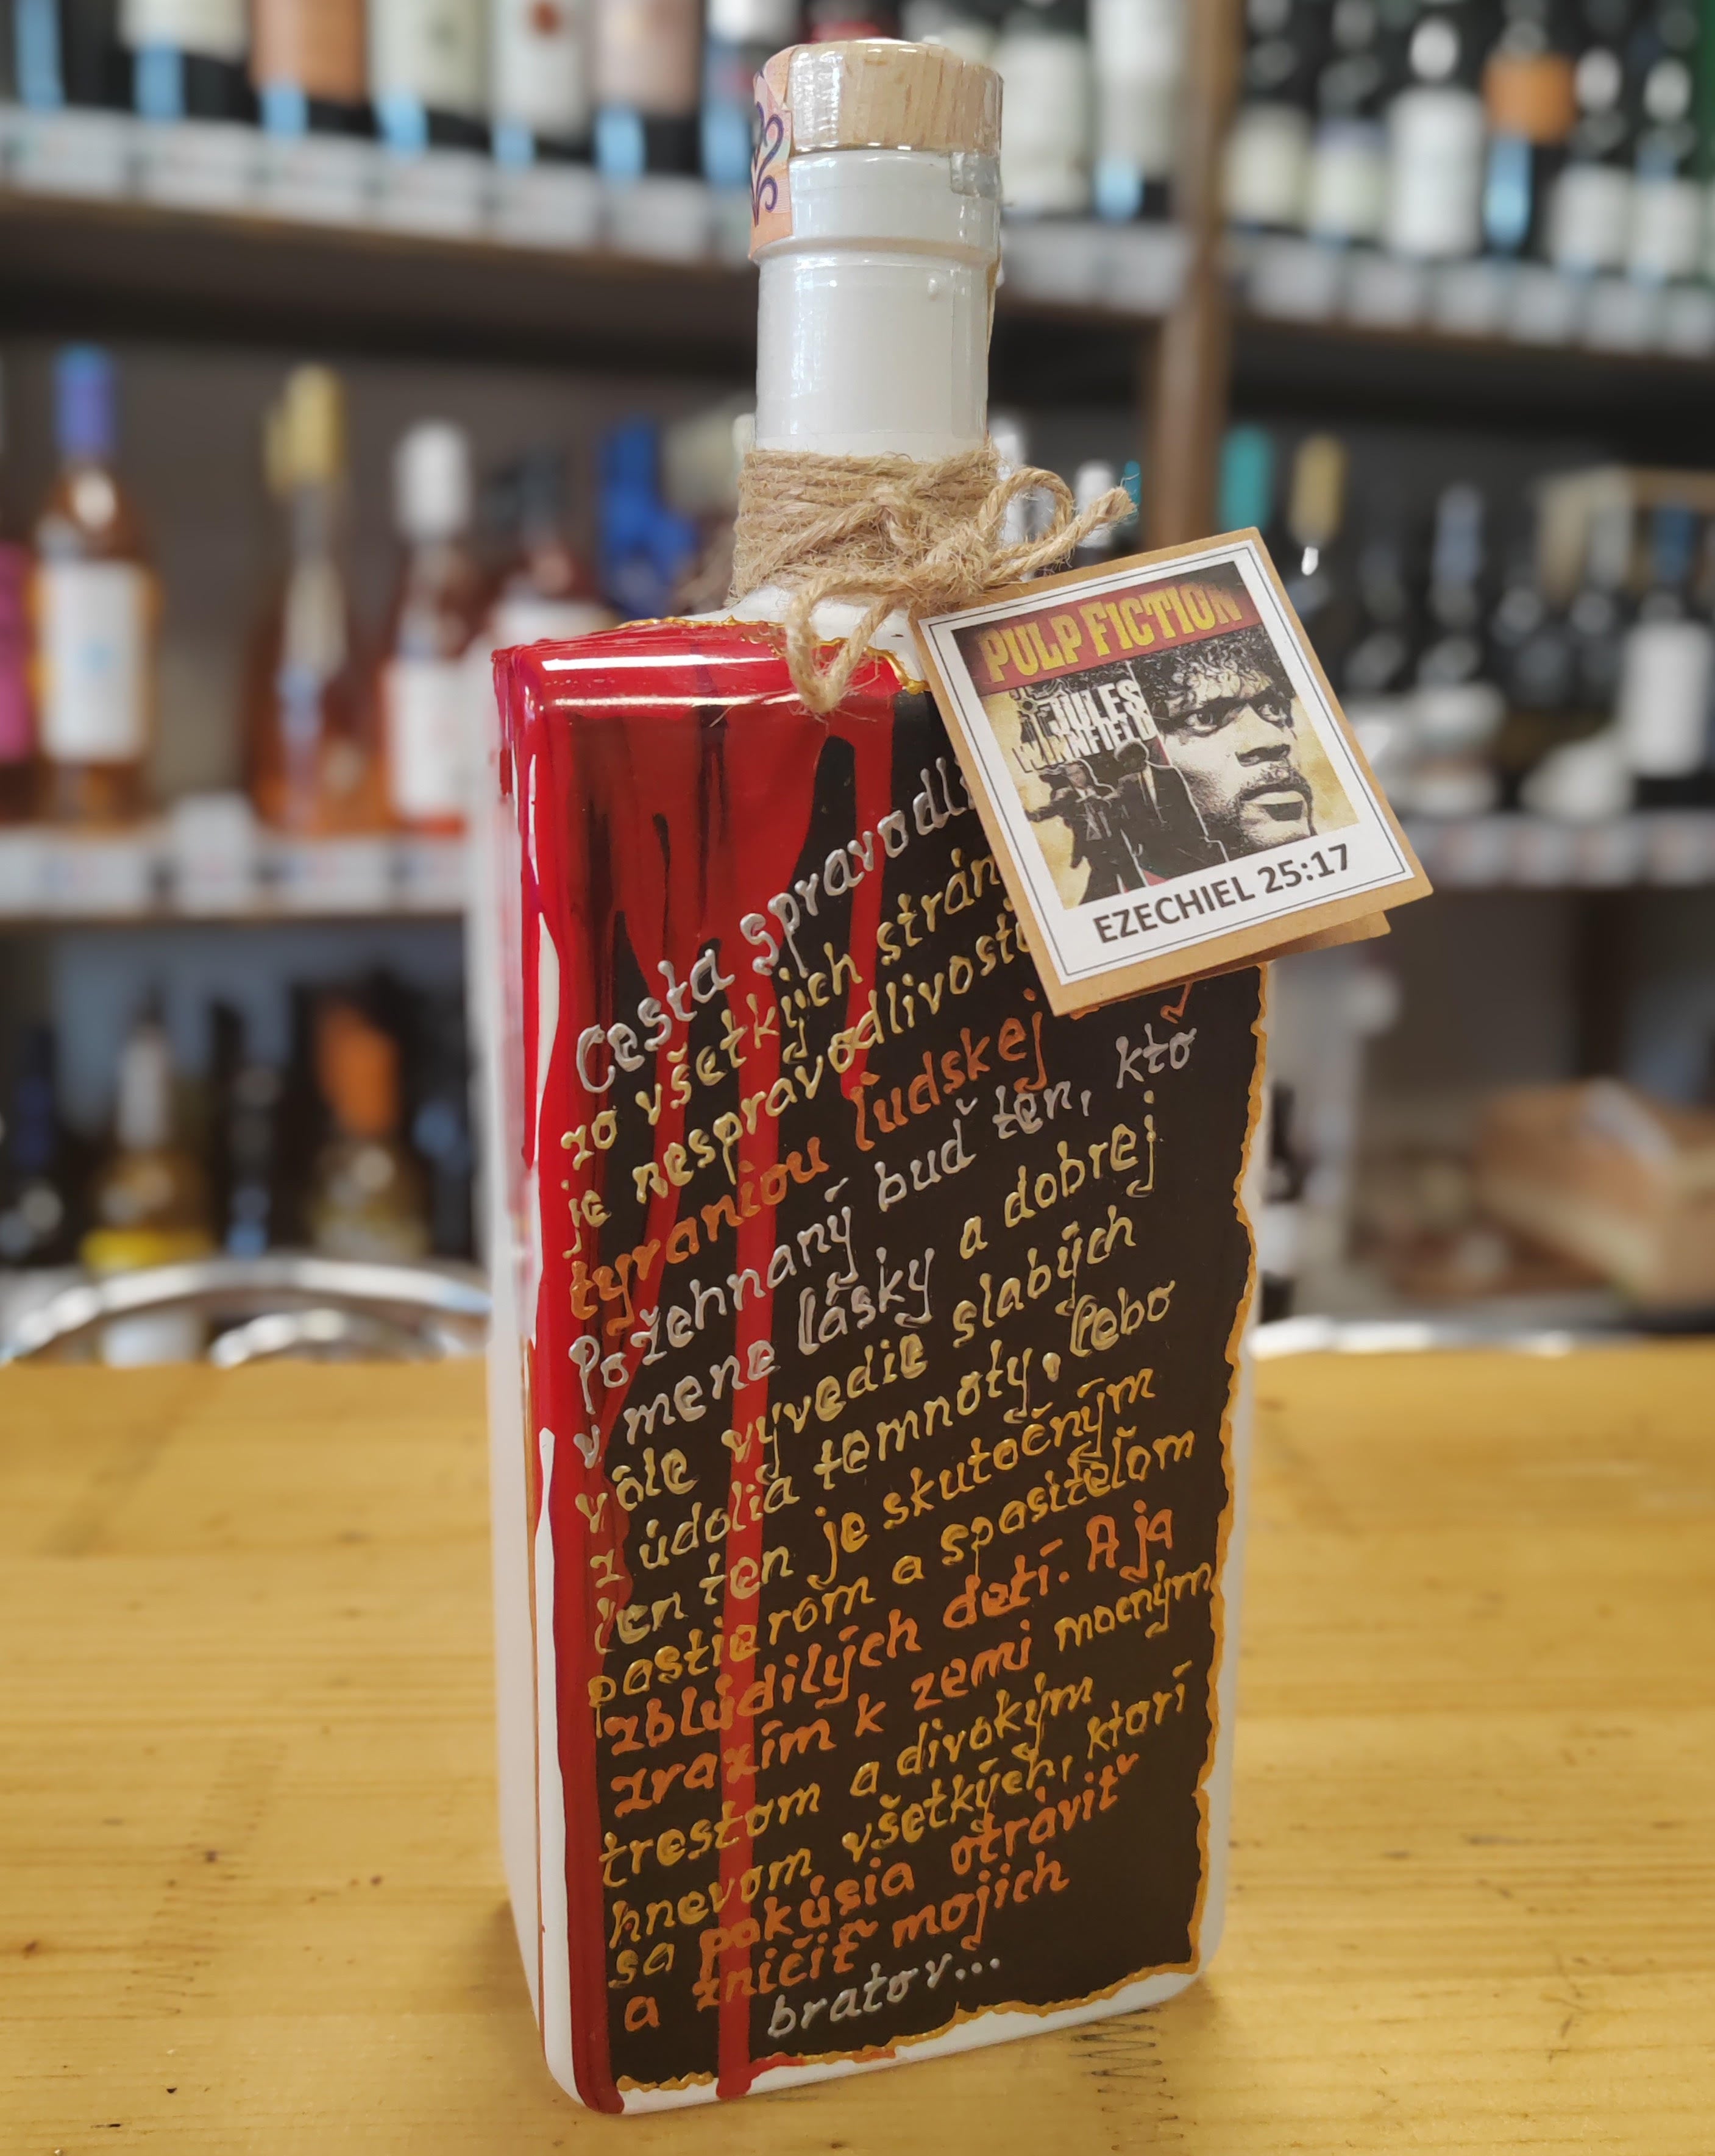 PULP FICTION
JULES
WINNFIELD
EZECHIEL 25:17
Cesta
zo všetkých
je
tyraniou ľudskej
Požehnaný buď ten, kto
v mene lásky a dobrej
vôle vyvedie slabých
z údolia temnoty, lebo
len ten je skutočným
pastierom a spasiteľom
zblúdilých detí. A ja
zrazím k zemi mocným
trestom a divokým
hnevom všetkých, ktorí
sa pokúsia otráviť
a zničiť mojich
bratov...